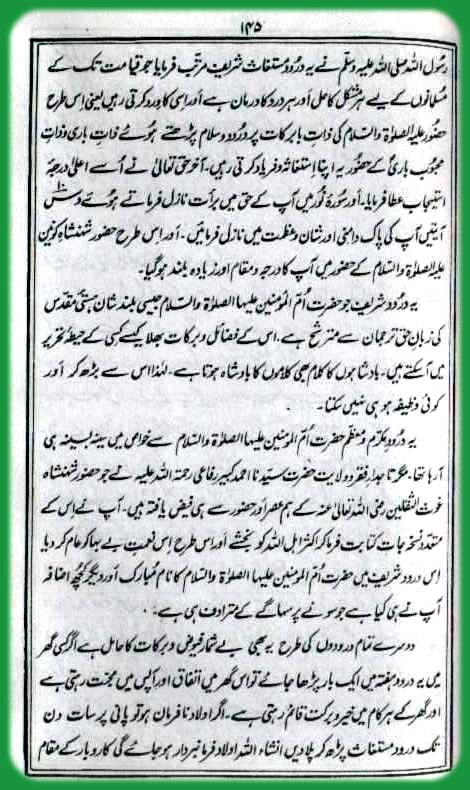 ۱۴۵
رسول اللہ صلی اللہ علیہ وسلم نے یہ درود مستغاث شریف مرتب فرمایا جو قیامت تک کے
مسلمانوں کے لیے ہر مشکل کا حل اور ہر درد کا درمان ہے اور اسی کا ورد کرتی رہیں یعنی اس طرح
حضور علیہ الصلوٰۃ والسلام کی ذات بابرکات پر درود و سلام پڑھتے ہوئے ذات باری و ذات
محبوب باری کے حضور یہ اپنا استغاثہ و فریاد کرتی رہیں۔ آخر حق تعالیٰ نے اُسے اعلیٰ درجۂ
استیجاب عطا فرمایا۔ اور سورۂ نور میں آپ کے حق میں برأت نازل فرماتے ہوئے دس
آیتیں آپ کی پاک دامنی اور شان و عظمت میں نازل فرمائیں۔ اور اس طرح حضور شہنشاہ کونین
علیہ الصلوٰۃ والسلام کے حضور میں آپ کا درجہ و مقام اور زیادہ بلند ہو گیا۔
یہ درود شریف جو حضرت اُمّ المؤمنین علیہا الصلوٰۃ والسلام جیسی بلند شان ہستیٔ مقدس
کی زبان حق ترجمان سے مترشح ہے۔ اس کے فضائل و برکات بھلا کیسے کسی کے حیطۂ تحریر
میں آسکتے ہیں۔ بادشاہوں کا کلام بھی کلاموں کا بادشاہ ہوتا ہے۔ لہٰذا اس سے بڑھ کر اور
کوئی وظیفہ ہو ہی نہیں سکتا۔
یہ درود مکرم و معظم حضرت اُمّ المؤمنین علیہا الصلوٰۃ والسلام سے خواص میں سینہ بسینہ ہی
آرہا تھا۔ مگر تاجدار فقر و ولایت حضرت سیدنا احمد کبیر رفاعی رحمۃ اللہ علیہ نے جو حضور شہنشاہ
غوث الثقلین رضی اللہ تعالیٰ عنہ کے ہم عصر اور حضور سے ہی فیض یافتہ ہیں۔ آپ نے اس کے
متعدد نسخہ جات کتابت فرما کر اکثر اہل اللہ کو بخشے اور اس طرح اس نعمت بے بہا کو عام کر دیا
اس درود شریف میں حضرت اُمّ المؤمنین علیہا الصلوٰۃ والسلام کا نام مبارک اور دیگر کچھ اضافہ
آپ نے ہی کیا ہے جو سونے پر سہاگے کے مترادف ہی ہے۔
دوسرے تمام درودوں کی طرح یہ بھی بے شمار فیوض و برکات کا حامل ہے اگر کسی گھر
میں یہ درود ہفتہ میں ایک بار پڑھا جائے تو اس گھر میں اتفاق اور آپس میں محبت رہتی ہے
اور گھر کے ہر کام میں خیر و برکت قائم رہتی ہے۔ اگر اولاد نافرمان ہو تو پانی پر سات دن
تک درود مستغاث پڑھ کر پلا دیں انشاء اللہ اولاد فرمانبردار ہو جائے گی کاروبار کے مقام